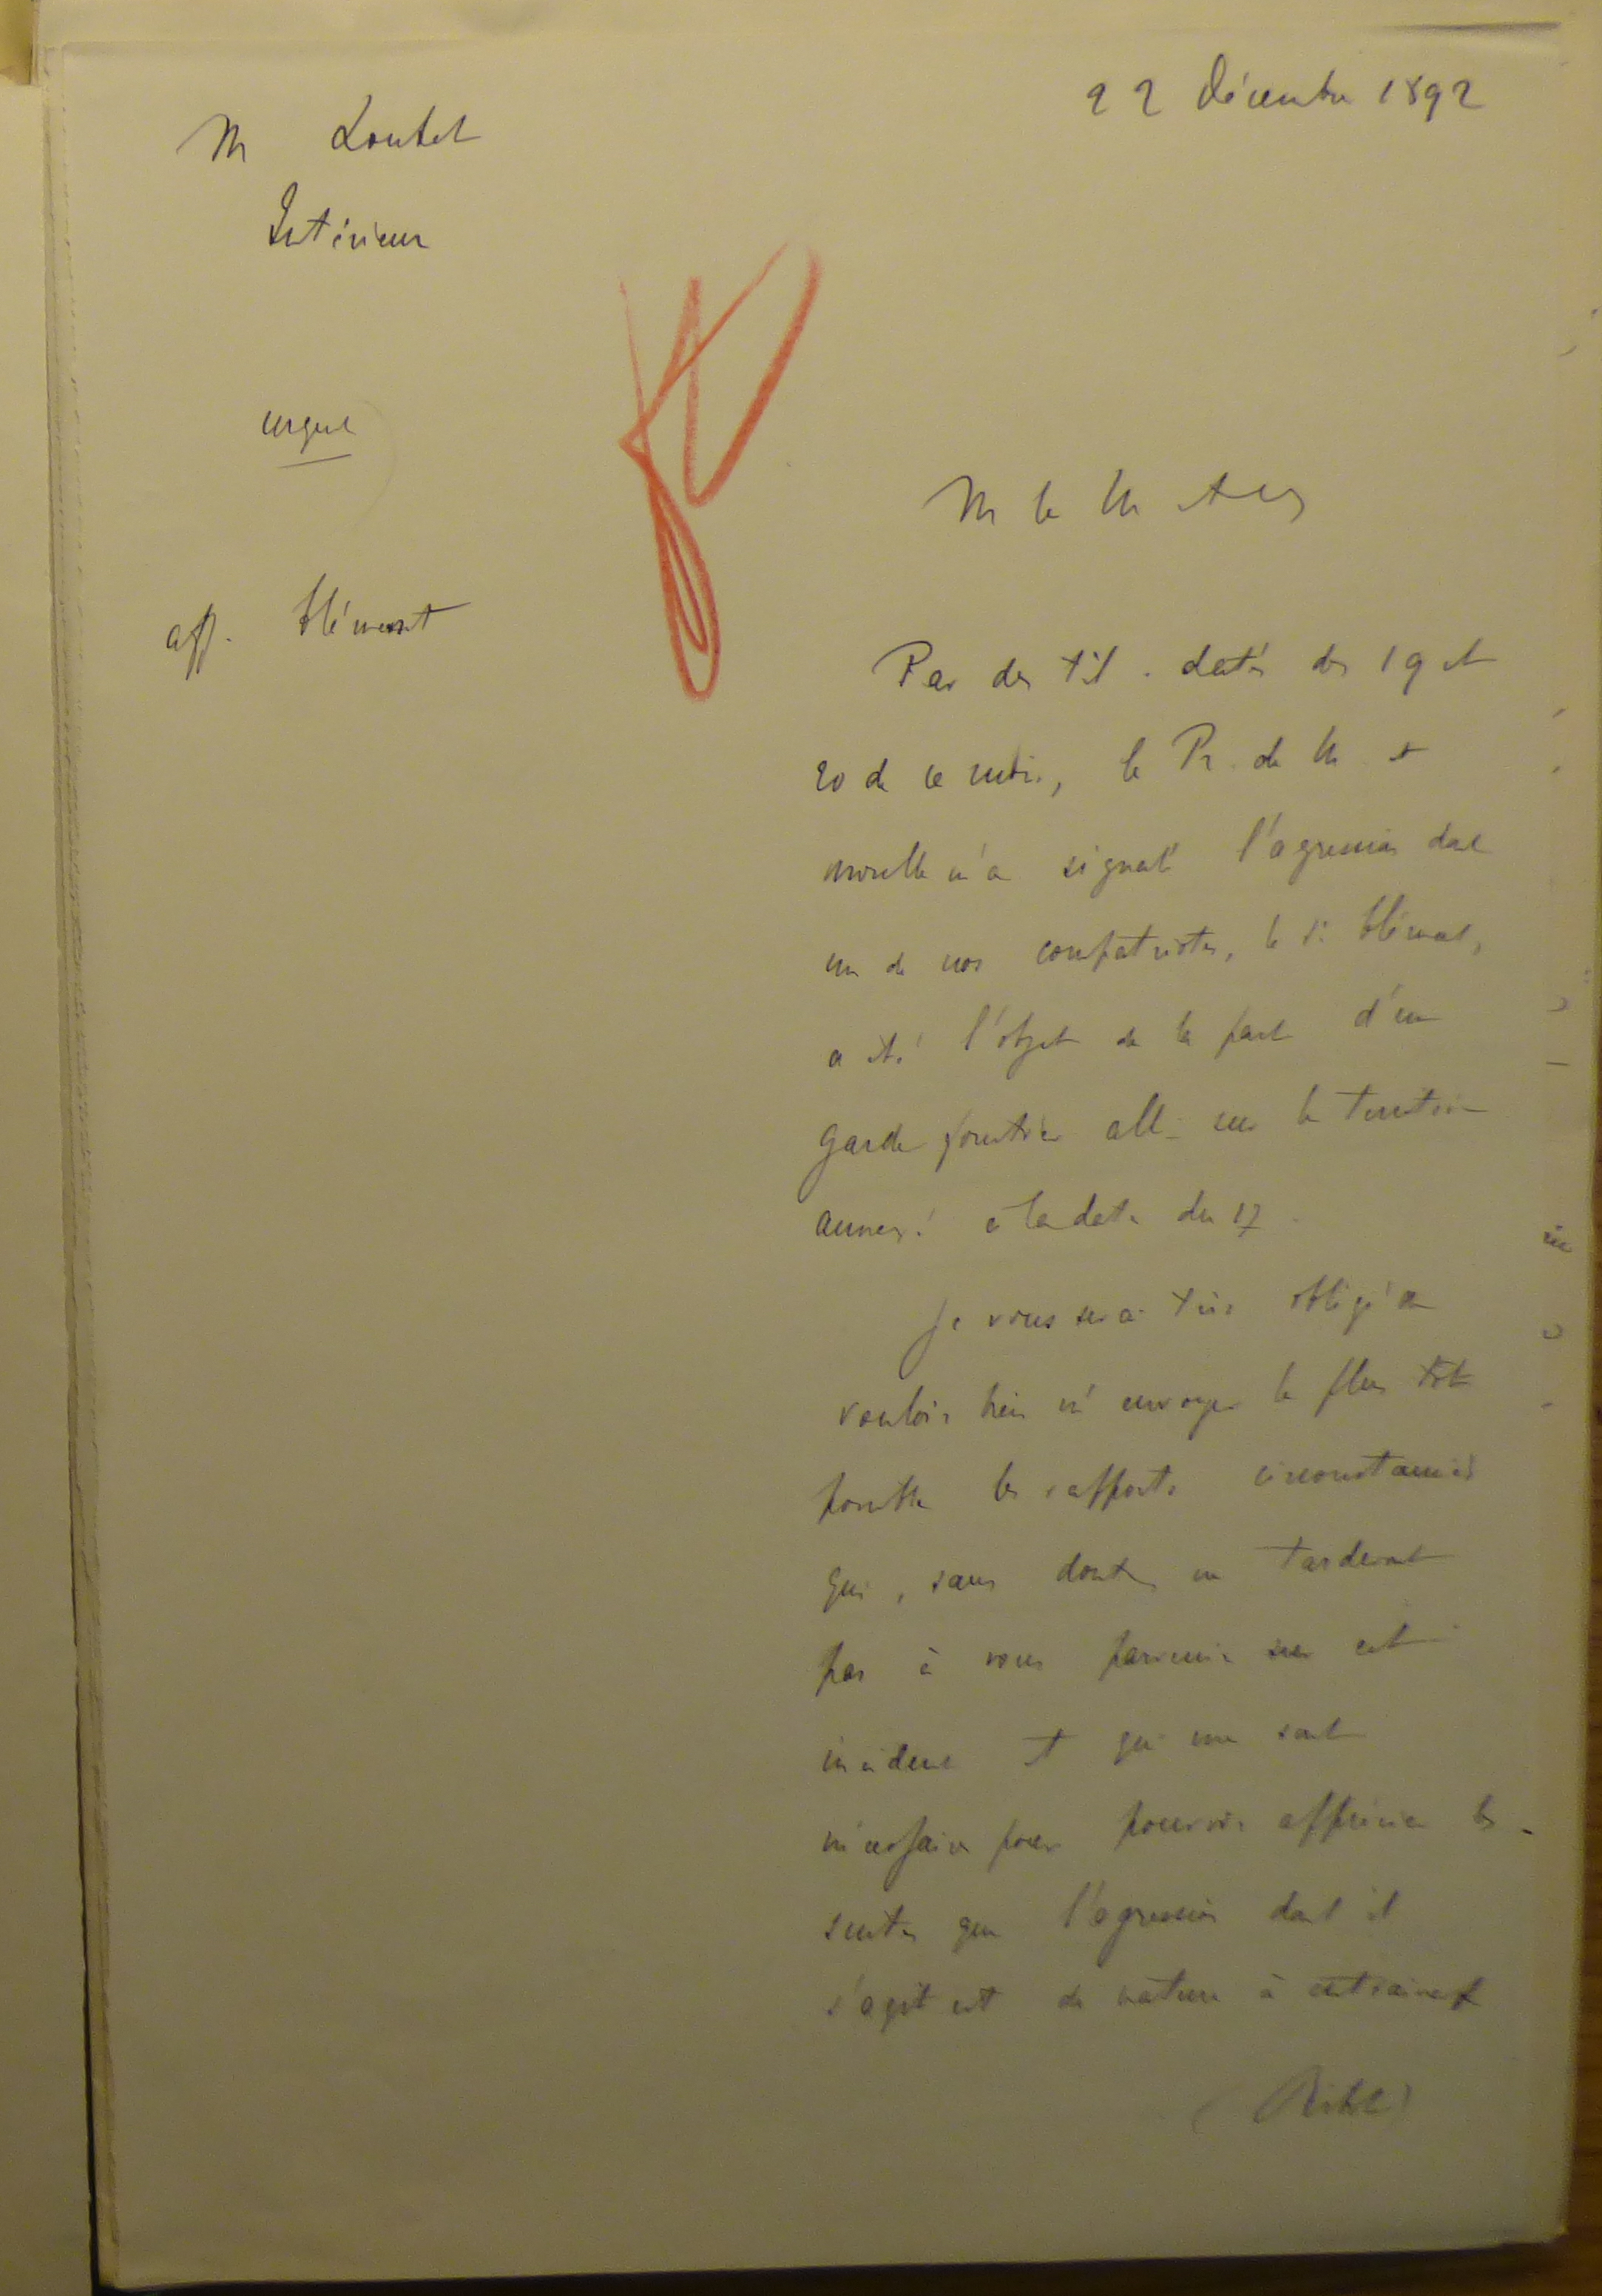 22 Décembre 1892
M Loubet
Intérieur
urgent
M le M et c
aff. Clément
Par des tél. datés des 19 et
20 de ce mois, le Pr. de M et
Moselle m'a signalé l'agression dont
un de nos compatriotes, le Sr. Clément,
a été l'objet de la part d'un
garde forestier all. sur le territoire
annexé à la date du 17.
Je vous serai très obligé de
vouloir bien m'envoyer le plus tôt
possible les rapports circonstanciés
qui, sans doute, ne tarderont
pas à vous parvenir sur cet
incident et qui me sont
nécessaires pour pouvoir apprécier les
suites que l'agression dont il
s'agit est de nature à entraîner
(Ribot)